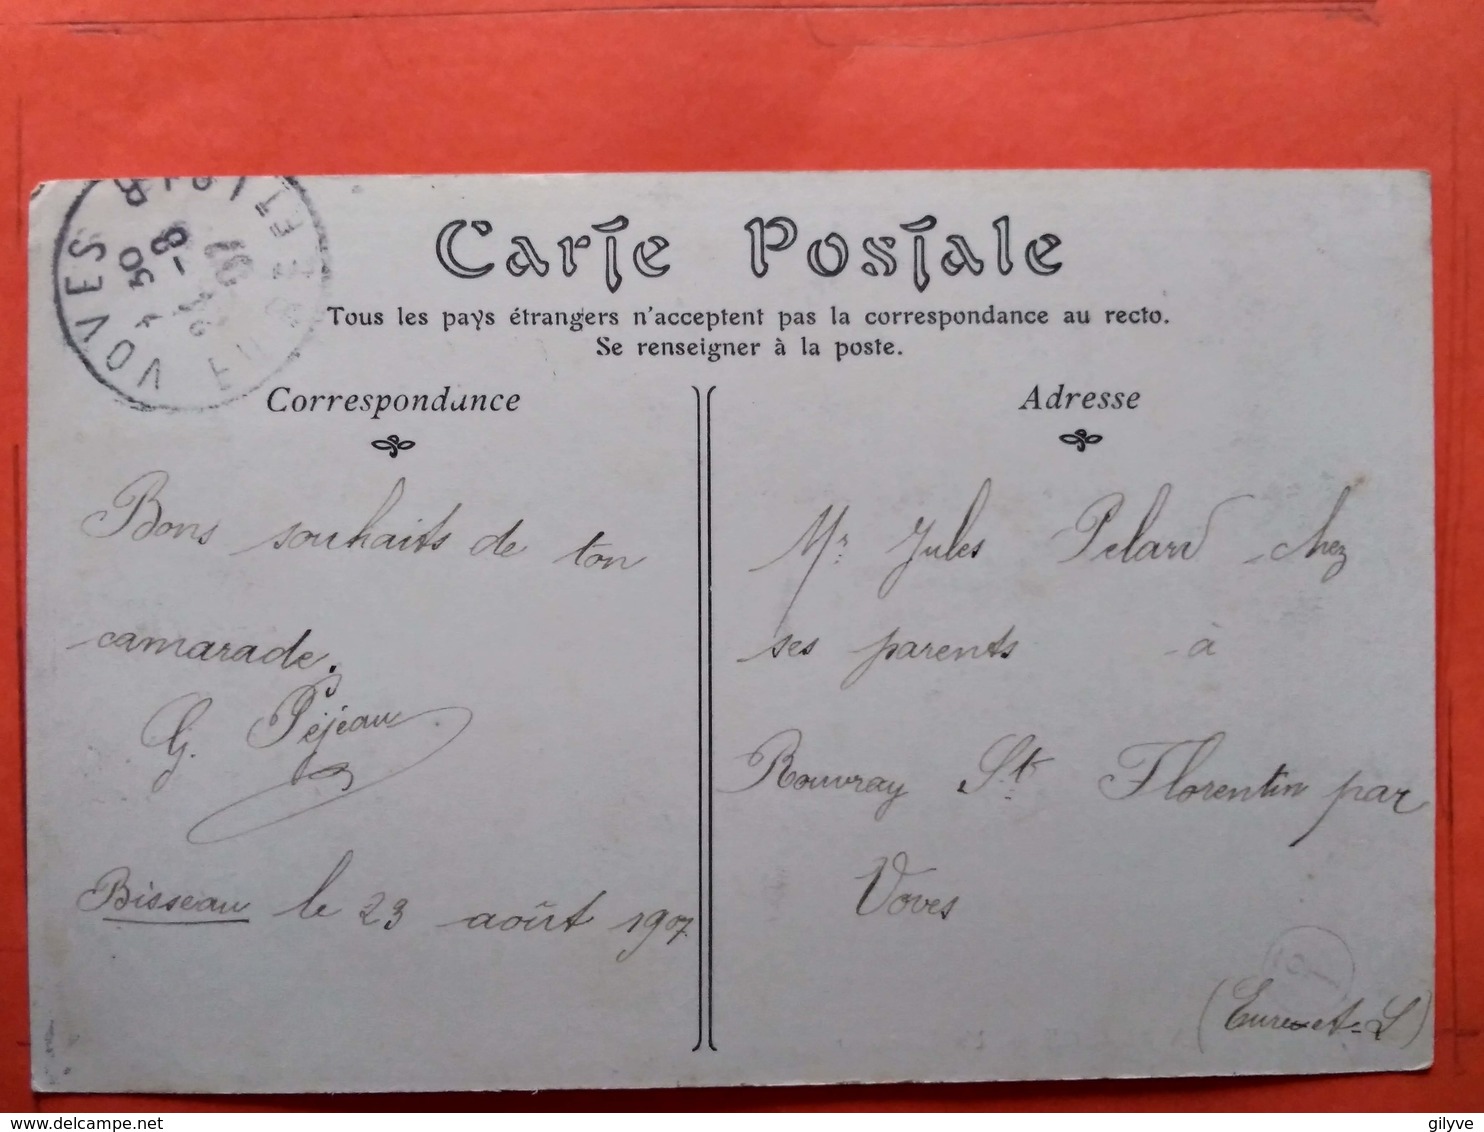 VOVES
Carte Postale
Tous les pays étrangers n'acceptent pas la correspondance au recto.
Se renseigner à la poste.
Correspondance
Bons souhaits de ton
camarade.
G. Péjeau
Bisseau le 23 août 1907
Adresse
Mr Jules Pelard chez
ses parents à
Rouvray St Florentin par
Voves
(Eure-et-L)
gilyve